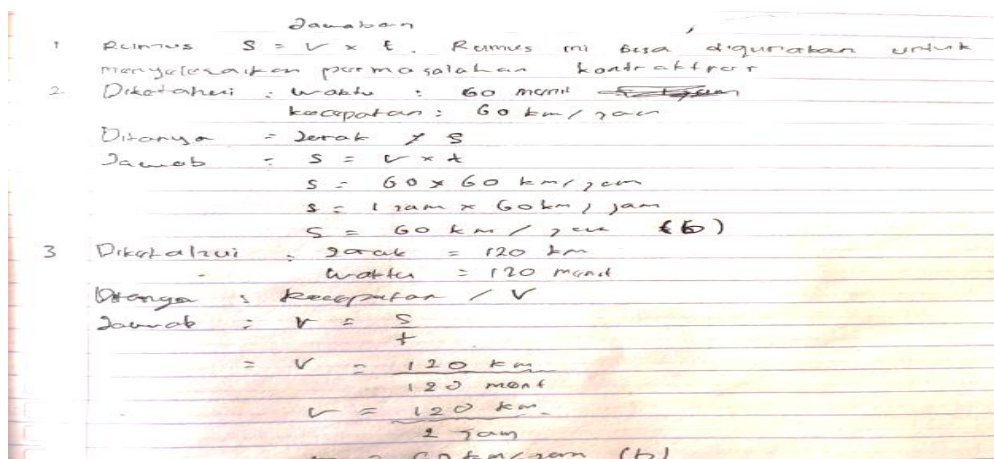 Jawaban
1 Rumus S = V x t. Rumus ini bisa digunakan untuk
menyelesaikan permasalahan kontraktror
2. Diketahui : waktu : 60 menit
kecepatan : 60 km/jam
Ditanya = Jarak / S
Jawab = S = V x t
S = 60 x 60 km/jam
S = 1 jam x 60 km/jam
S = 60 km/jam (b)
3 Diketahui : Jarak = 120 km
waktu = 120 menit
Ditanya : kecepatan / V
Jawab : V = S
t
= V = 120 km
120 menit
V = 120 km
2 Jam
60 km/jam (b)